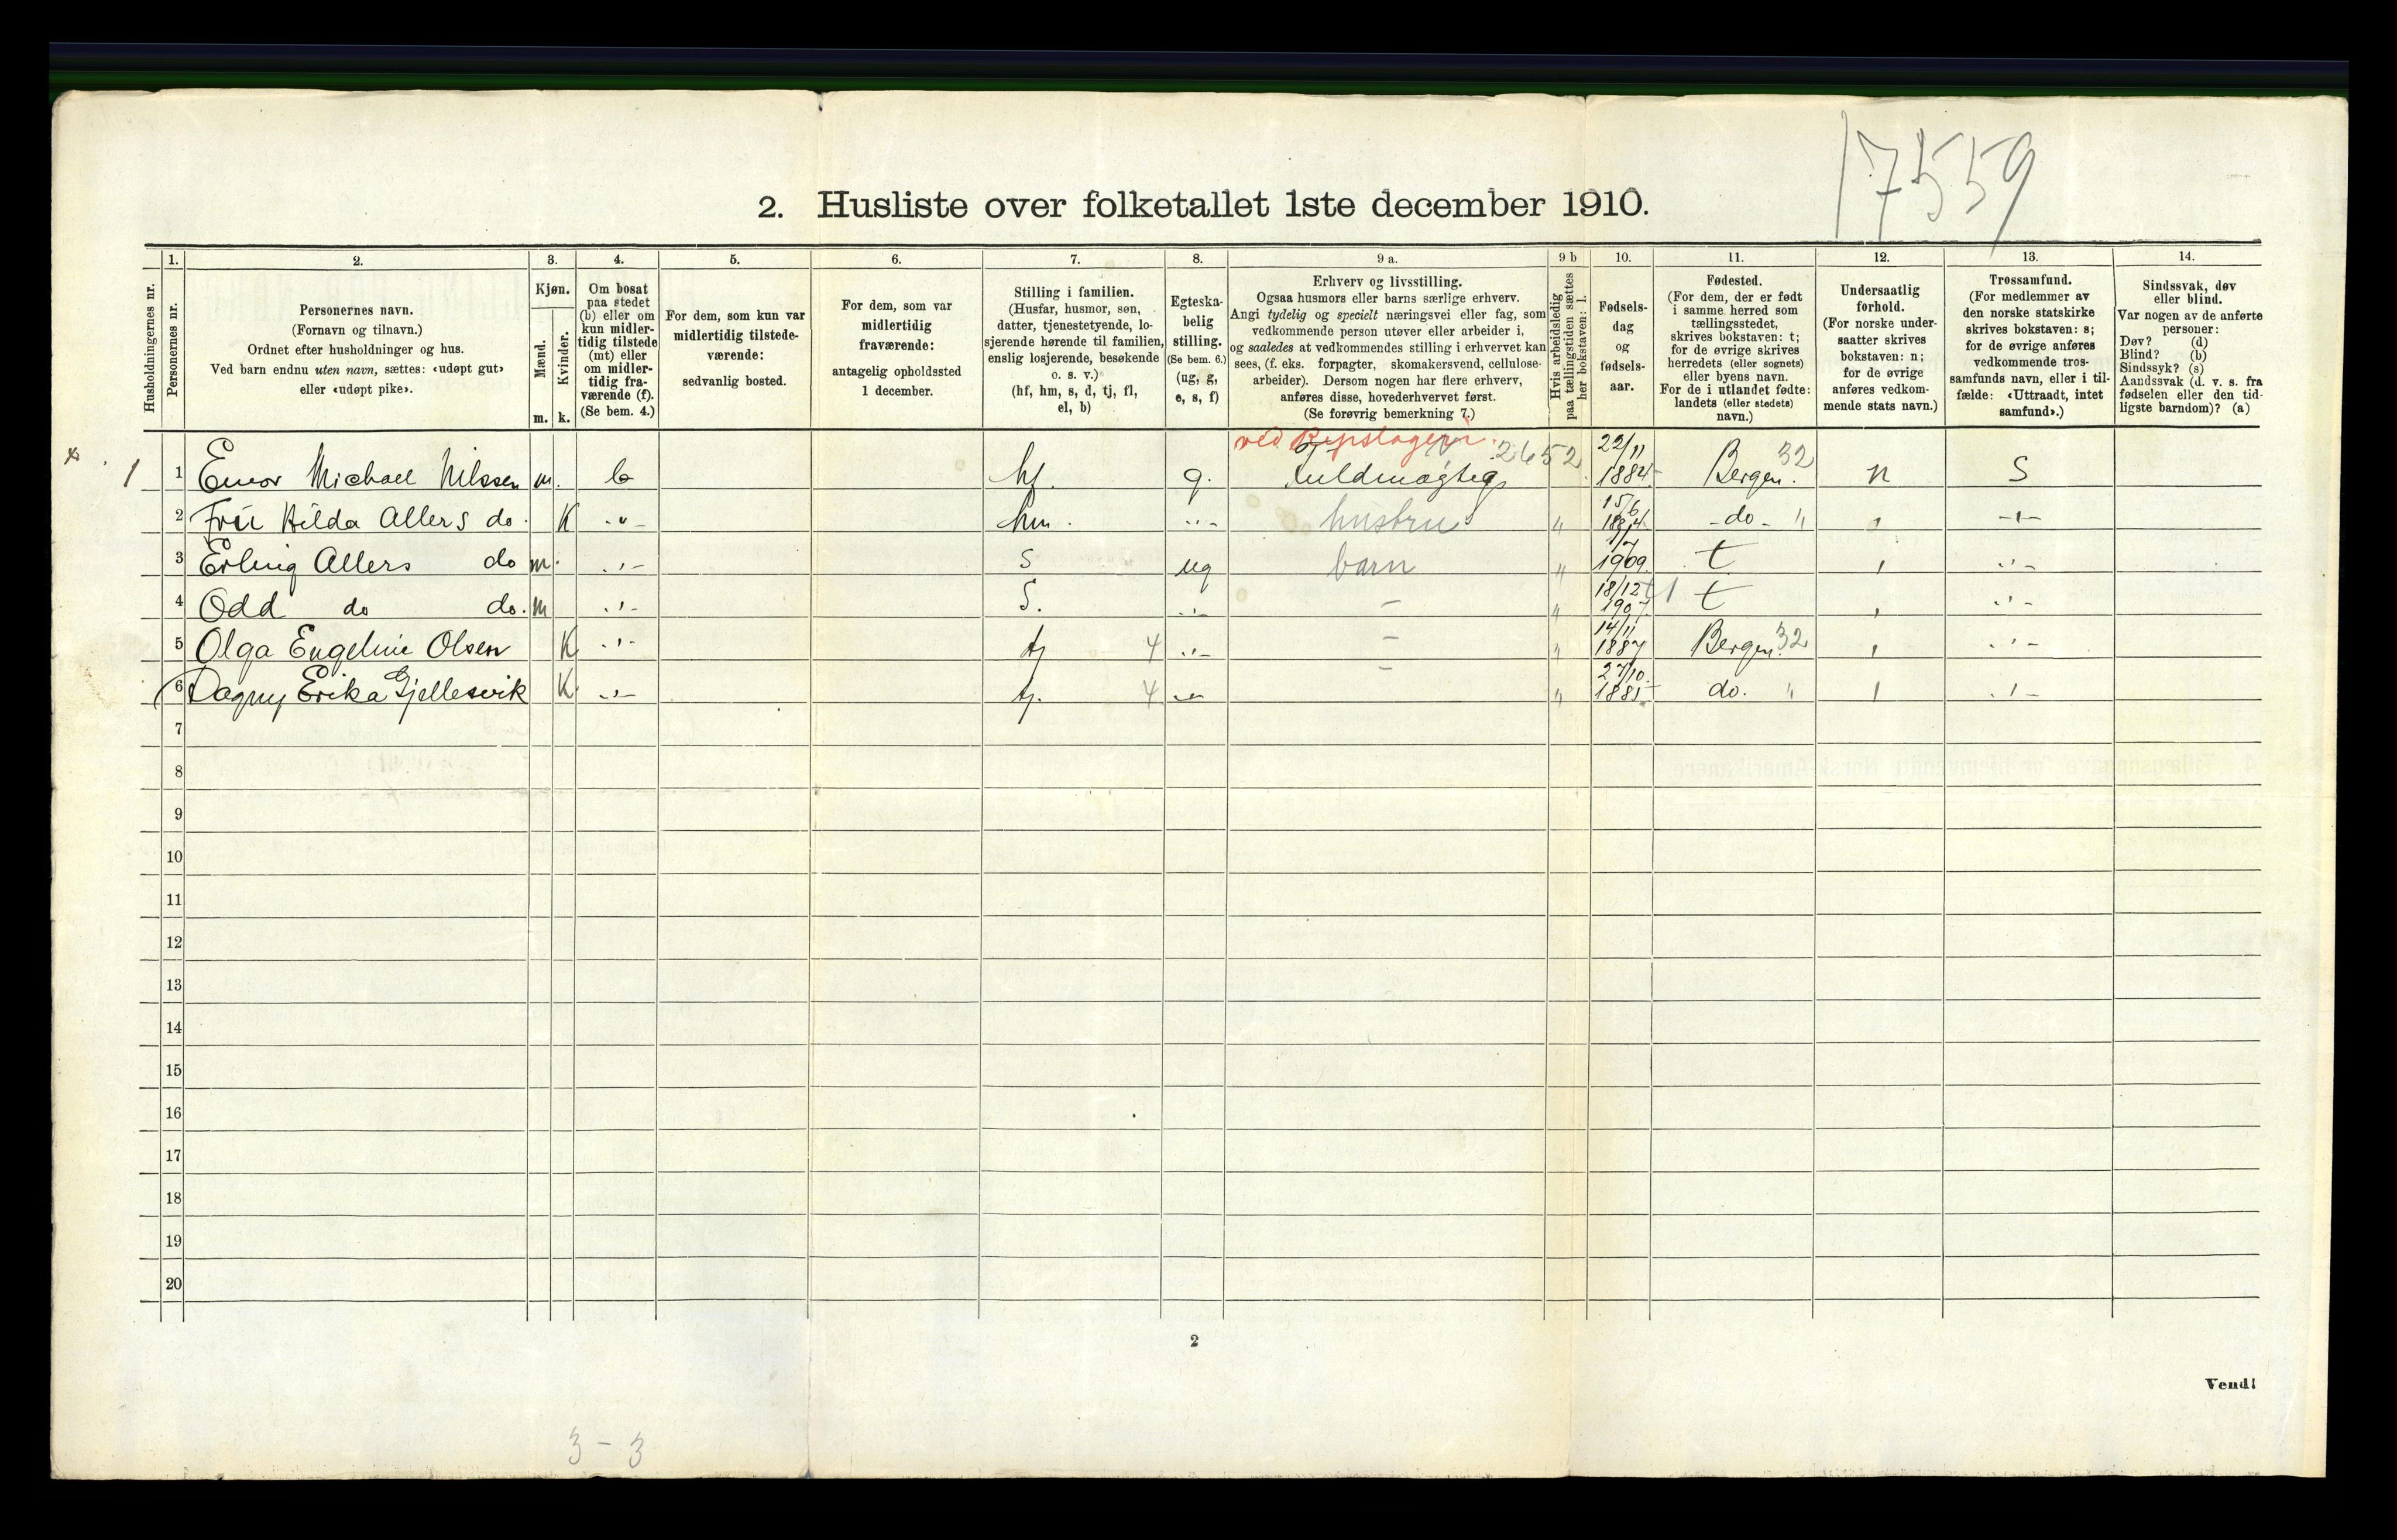 17559
2. Husliste over folketallet 1ste december 1910.
Husholdningernes nr.
1.
Personernes nr.
2.
Personernes navn.
(Fornavn og tilnavn.)
Ordnet efter husholdninger og hus.
Ved barn endnu uten navn, sættes: «udøpt gut»
eller «udøpt pike».
3.
Kjøn.
Mænd.
Kvinder.
m. k.
4.
Om bosat
paa stedet
(b) eller om
kun midler-
tidig tilstede
(mt) eller
om midler-
tidig fra-
værende (f).
(Se bem. 4.)
5.
For dem, som kun var
midlertidig tilstede-
værende:
sedvanlig bosted.
6.
For dem, som var
midlertidig
fraværende:
antagelig opholdssted
1 december.
7.
Stilling i familien.
(Husfar, husmor, søn,
datter, tjenestetyende, lo-
sjerende hørende til familien,
enslig losjerende, besøkende
o. s. v.)
(hf, hm, s, d, tj, fl,
el, b)
8.
Egteska-
belig
stilling.
(Se bem. 6.)
(ug, g,
e, s, f)
9 a.
Erhverv og livsstilling.
Ogsaa husmors eller barns særlige erhverv.
Angi tydelig og specielt næringsvei eller fag, som
vedkommende person utøver eller arbeider i,
og saaledes at vedkommendes stilling i erhvervet kan
sees, (f. eks. forpagter, skomakersvend, cellulose-
arbeider). Dersom nogen har flere erhverv,
anføres disse, hovederhvervet først.
(Se forøvrig bemerkning 7.)
9 b
Hvis arbeidsledig
paa tællingstiden sættes
her bokstaven: l.
10.
Fødsels-
dag
og
fødsels-
aar.
11.
Fødested.
(For dem, der er født
i samme herred som
tællingsstedet,
skrives bokstaven: t;
for de øvrige skrives
herredets (eller sognets)
eller byens navn.
For de i utlandet fødte:
landets (eller stedets)
navn.)
12.
Undersaatlig
forhold.
(For norske under-
saatter skrives
bokstaven: n;
for de øvrige
anføres vedkom-
mende stats navn.)
13.
Trossamfund.
(For medlemmer av
den norske statskirke
skrives bokstaven: s;
for de øvrige anføres
vedkommende tros-
samfunds navn, eller i til-
fælde: «Uttraadt, intet
samfund».)
14.
Sindssvak, døv
eller blind.
Var nogen av de anførte
personer:
Døv? (d)
Blind? (b)
Sindssyk? (s)
Aandssvak (d. v. s. fra
fødselen eller den tid-
ligste barndom)? (a)
ved Repslageri 2652 22/11
1 1 Michael Nilssen m. b hf. g. fuldmægtig 1884 Bergen. 32 n S
15/6
2 Fru Hilda Allers do. K " hm. " hustru " 1884 do " "
3 Erling Allers do m. " s ug barn " 1909. t " "
18/12
4 Odd do do. m " S. " – " 1907 t " "
14/11
5 Olga Engeline Olsen K " tj 4 " – " 1887 Bergen. 32 " "
27/10.
6 Dagny Erika Gjellesvik K " tj. 4 " – " 1885 do. " " "
7
8
9
10
11
12
13
14
15
16
17
18
19
20
2
Vend!
3 – 3